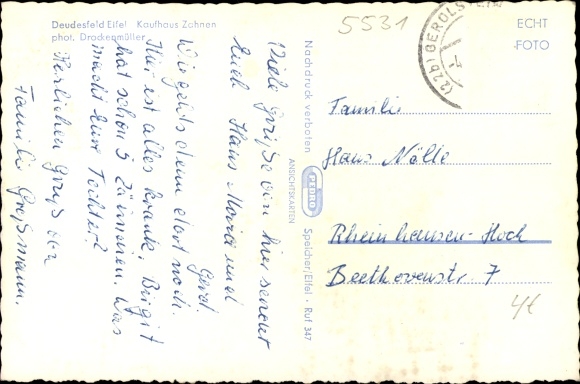 Deudesfeld Eifel Kaufhaus Zahnen
phot. Drockenmüller
5531
(22b) GEROLSTEIN
-4
ECHT
-FOTO
Viele Grüße von hier sendet
Euch Hans Maria und
Gerd.
Wie gehts denn dort noch.
Hier ist alles krank. Birgit
hat schon 3 Zähnchen. Was
macht Eure Tochter?
Herzlichen Gruß der
Familie Großmann.
Nachdruck verboten
ANSICHTSKARTEN
Speicher/Eifel · Ruf 347
Familie
Hans Nölle
Rheinhausen-Hoch
Beethovenstr. 7